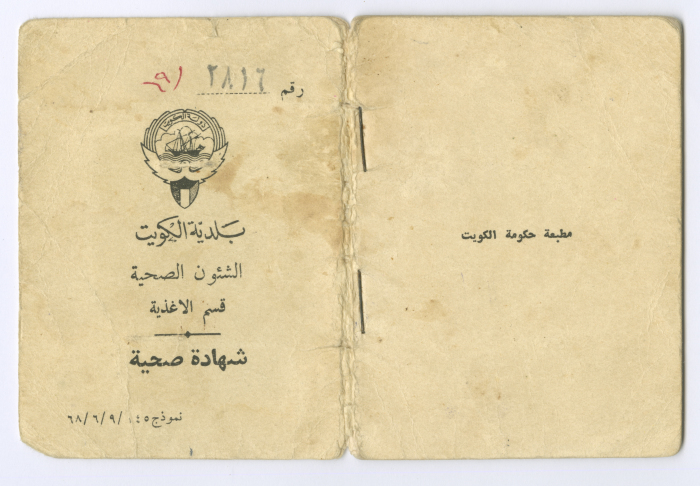 رقم ٢٨١٦ /٦٩
دولة الكويت
بلدية الكويت
الشئون الصحية
قسم الاغذية
شهادة صحية
نموذج ٤٥ /٦٨/٦/٩
مطبعة حكومة الكويت